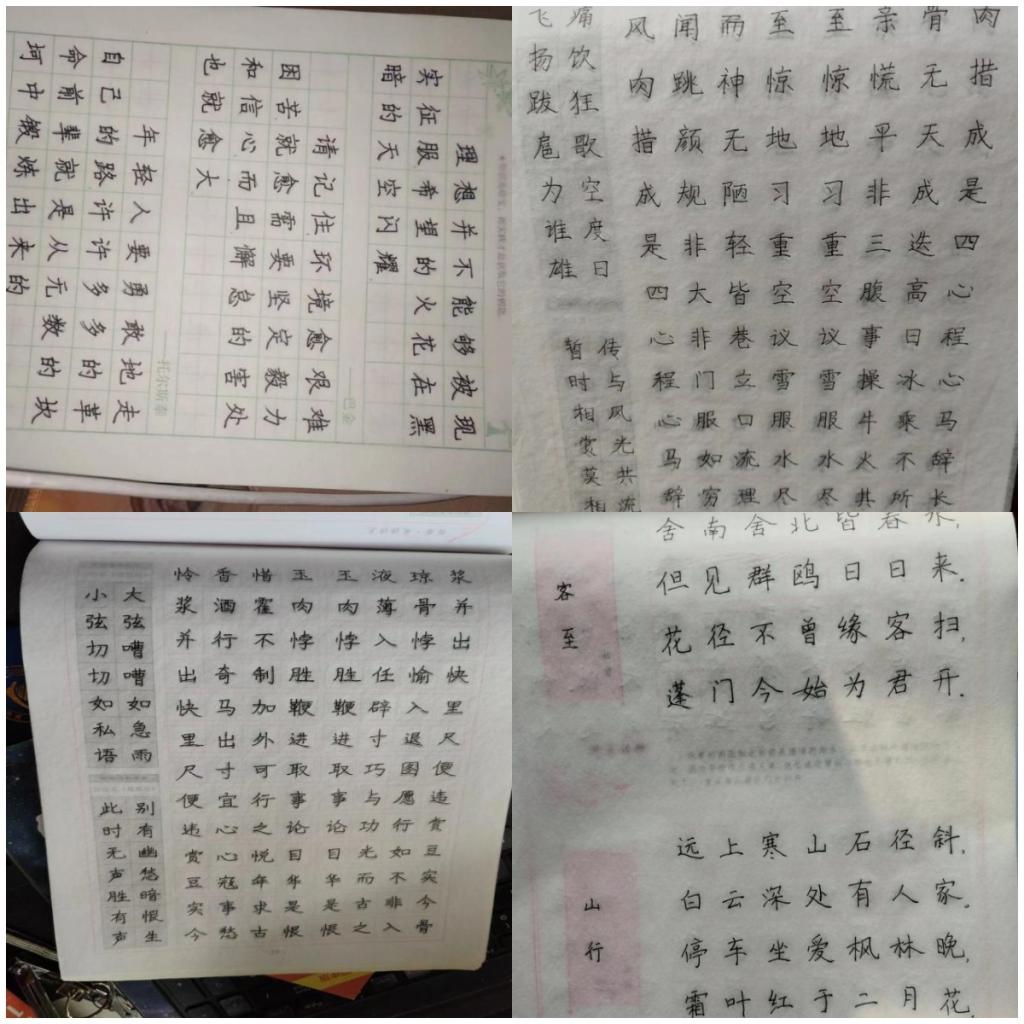 理想并不能够被现
实征服希望的火花在黑
暗的天空闪耀
请记住环境愈艰难
困苦就愈需要坚定毅力
和信心而且懈怠的害处
也就愈大
——巴金
年轻人要勇敢地走
自己的路许许多多的革
命前辈就是从无数的坎
坷中锻炼出来的
——托尔斯泰
痛饮狂歌空度日
飞扬跋扈为谁雄
传与风光共流
暂时相赏莫相
风闻而至至亲骨肉
肉跳神惊惊慌无措
措颜无地地平天成
成规陋习习非成是
是非轻重重三迭四
四大皆空空腹高心
心非巷议议事日程
程门立雪雪操冰心
心服口服服牛乘马
马如流水水火不辞
辞穷理尽尽其所长
大弦嘈嘈如急雨
小弦切切如私语
别有幽愁暗恨生
此时无声胜有声
怜香惜玉玉液琼浆
浆酒霍肉肉薄骨并
并行不悖悖入悖出
出奇制胜胜任愉快
快马加鞭鞭辟入里
里出外进进寸退尺
尺寸可取取巧图便
便宜行事事与愿违
违心之论论功行赏
赏心悦目目光如豆
豆寇年华华而不实
实事求是是古非今
今愁古恨恨之入骨
客至
舍南舍北皆春水,
但见群鸥日日来.
花径不曾缘客扫,
蓬门今始为君开.
山行
远上寒山石径斜,
白云深处有人家.
停车坐爱枫林晚,
霜叶红于二月花.